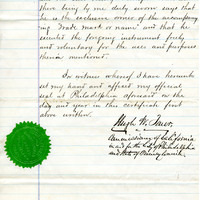 there being by me duly sworn says that
he is the exclusive owner of the accompany-
ing Trade mark or name and that he
executed the foregoing instrument freely
and voluntary for the uses and purposes
therein mentioned.
In witness whereof I have hereunto
set my hand and affixed my official
seal at Philadelphia aforesaid on the
day and year in this certificate first
above written.
Hugh W.
Commissioner of California
in and for the City of Philadelphia
and State of Pennsylvania